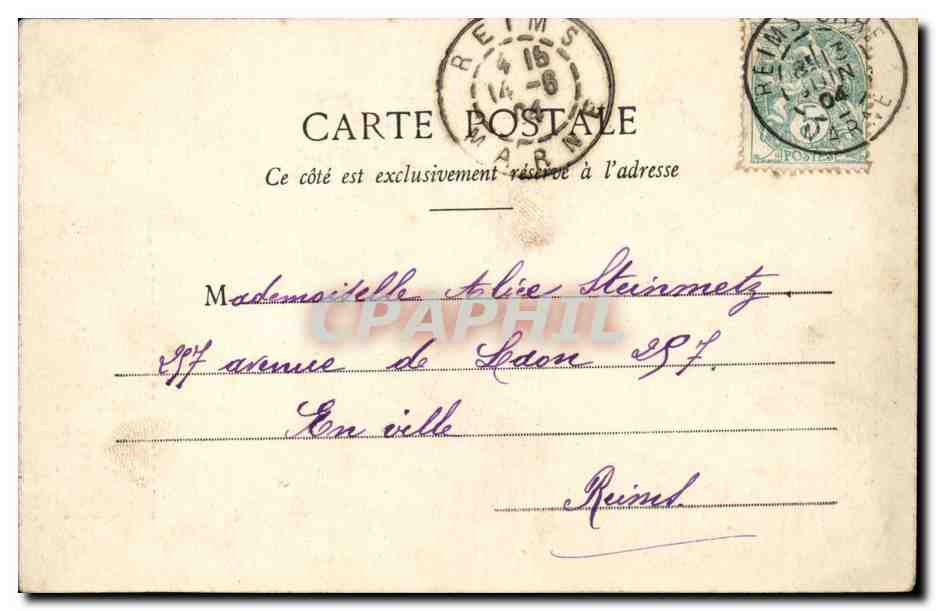 REIMS
4 15
14 -6
04
MARNE
REIMS
JUIN
04
MARNE
POSTES
CARTE POSTALE
Ce côté est exclusivement réservé à l'adresse
Mademoiselle Alice Steinmetz
CPAPHIL
257 avenue de Laon 257.
En ville
Reims.